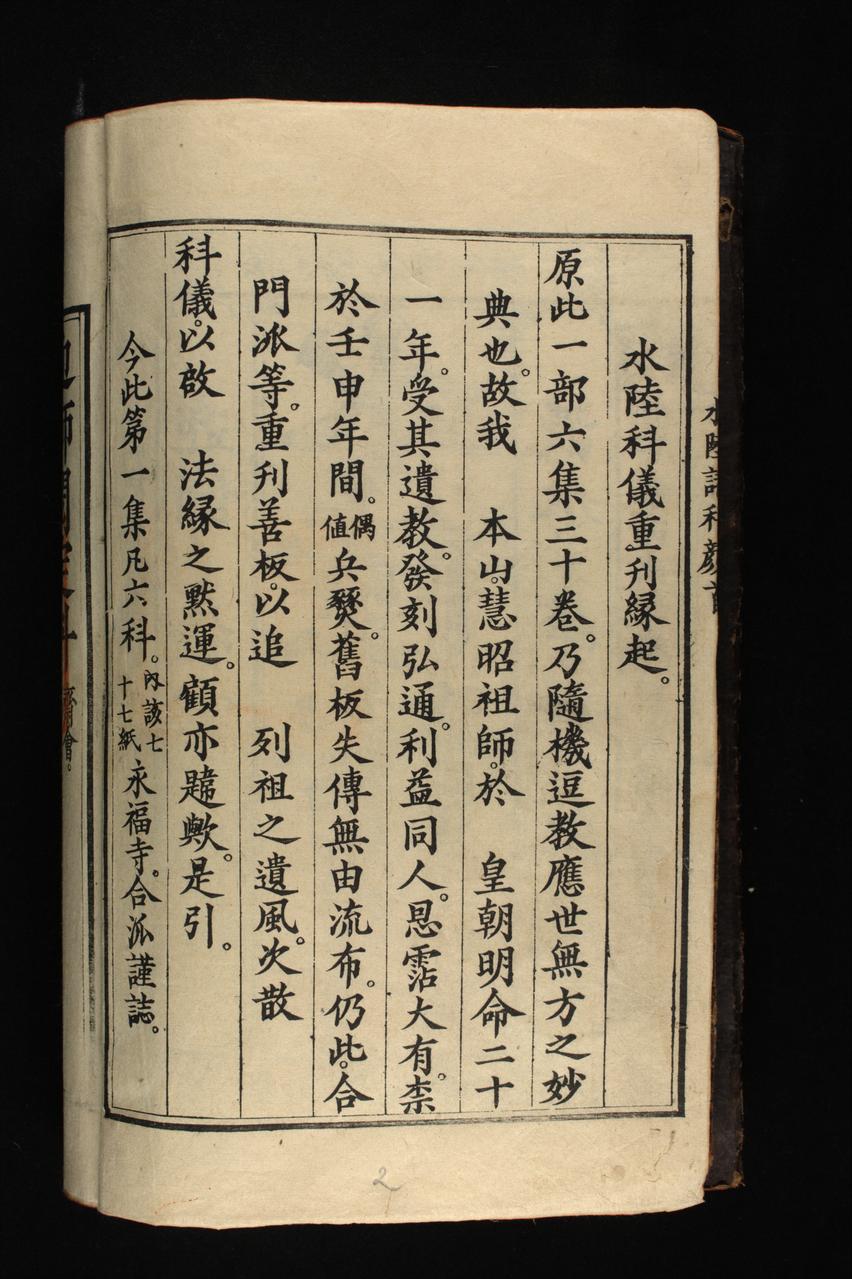 水陸諸科
水陸科儀重刋縁起。
原此一部六集三十卷。乃隨機逗教應世無方之妙
典也。故我　本山。慧昭祖師。於　皇朝明命二十
一年。受其遺教。發刻弘通。利益同人。恩霑大有。柰
於壬申年間。偶值兵燹。舊板失傳無由流布。仍此。合
門派等。重刋善板。以追　列祖之遺風。次散
科儀。以啟　法縁之黙運。顧亦韙歟。是引。
今此第一集凡六科。內該七十七紙永福寺。合派謹誌。